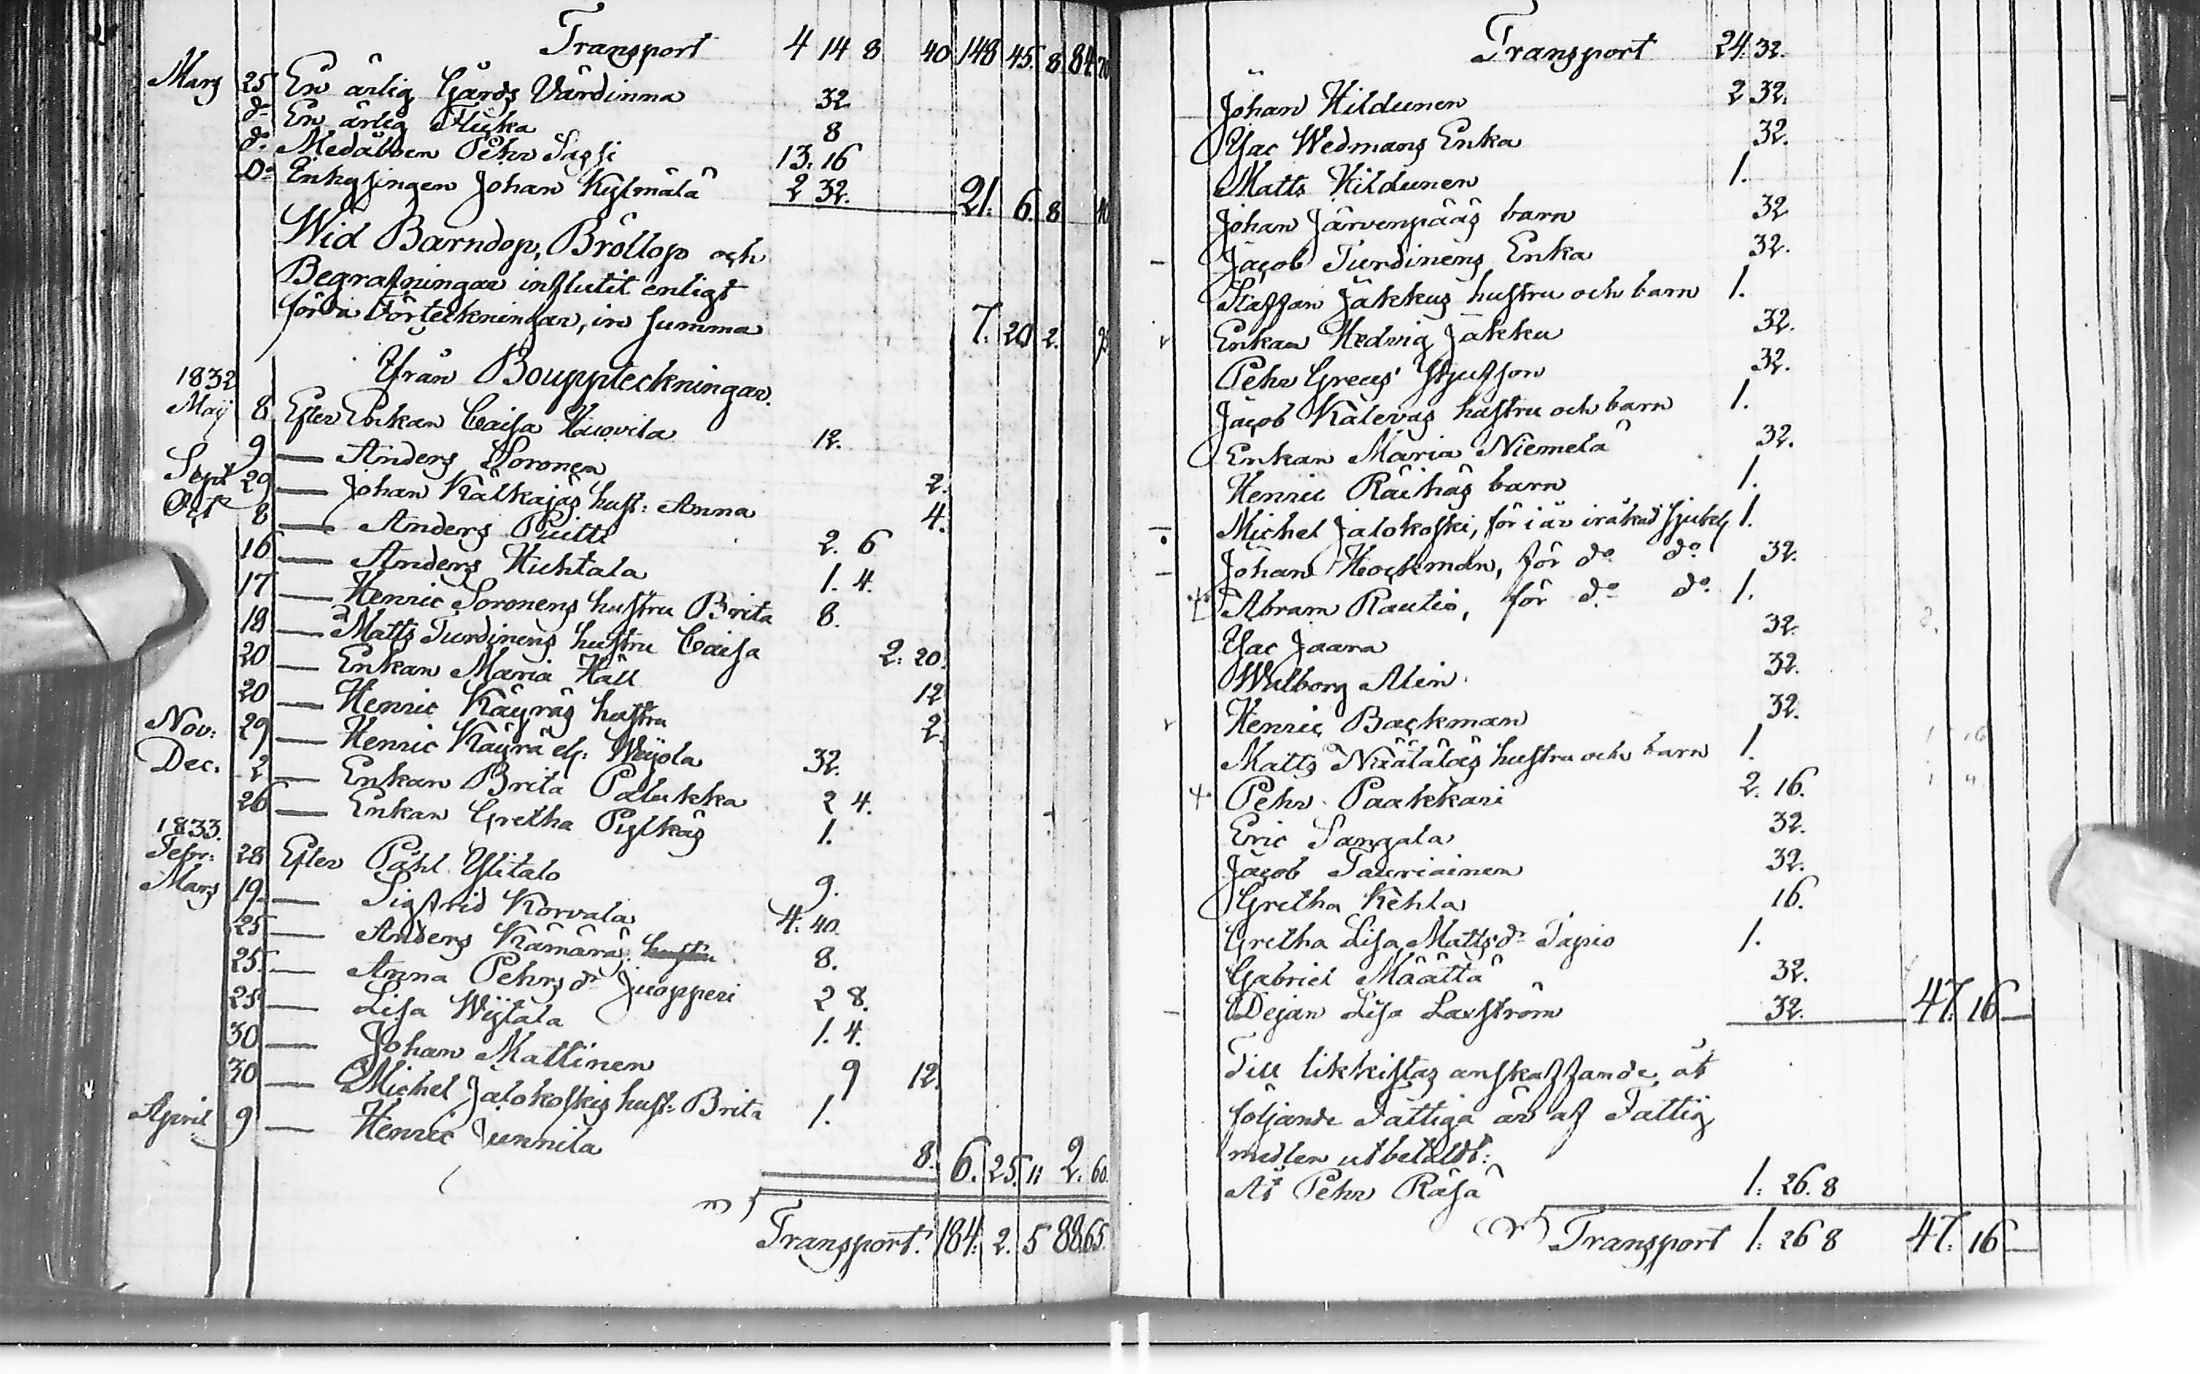 Transport 4 14 8 40 148 45. 8 84 70
Mars 25 En ärlig Gårds Värdinna 32
do En ärlig Flicka 8
do Medaljen Pehr Sassi 13. 16
Do Enkylingen Johan Kylmälä 2 32. 21. 6. 8 40
Wid Barndop, Bröllop och
Begrafningar influtit enligt
förda Förteckningar, in summa 7. 20 2.
Ifrån Bouppteckningar.
1832
Maij 8 Efter Enkan Caisa Huovila 12.
9 — Anders Soronen 2.
Sept 29 — Johan Kälkäjäs hust: Anna 4.
Oct 8 — Anders Puitti 2. 6
16 — Anders Huhtala 1. 4.
17 — Henric Soronens hustru Brita 8.
18 — Matts Turdinens hustru Caisa 2: 20.
20 — Enkan Maria Häll 12
20 — Henric Käyräs hustru 2.
Nov: 29 — Henric Käyrä el: Weijola 32.
Dec. 2 — Enkan Brita Palukka 2 4.
26 — Enkan Gretha Pylkäs 1.
1833.
Febr: 28 Efter Påhl Ylitalo 9.
Mars 19 — Sigfrid Korvala 4: 40.
25 — Anders Kämärä 8.
25 — Anna Pehrsdr Juopperi 2 8.
25 — Lisa Wijtala 1. 4.
30 — Johan Mattinen 9 12.
30 — Michel Jalokoskis hust: Brita 1.
April 9 — Henric Junnila 8. 6. 25. 11 2. 60.
Transport. 184. 2. 5 88 65.
Transport 24. 32.
Johan Hildunen 2 32.
Isac Wedmans Enka 32.
Matts Hildunen 1.
Johan Järvenpääs barn 32
Jacob Turdinens Enka 32.
Staffan Jäkkus hustru och barn 1.
Enkan Hedvig Jäkku 32.
Pehr Greus' Styfson 32.
Jacob Kalevas hustru och barn 1.
Enkan Maria Niemelä 32.
Henric Räihäs barn 1.
Michel Jalokoski, för i år iråkad sjukd. 1.
Johan Hockman, för do do 32.
Abram Rautio, för do do 1.
Isac Jaara 32.
Walborg Alin 32.
Henric Backman 32.
Matts Niätäläs hustru och barn 1.
Pehr Paakkari 2. 16.
Eric Sangala 32.
Jacob Tauriainen 32.
Gretha Kehla 16.
Gretha Lisa Mattsdr Tapio 1.
Gabriel Määttä 32.
Dejan Lisa Laxström 32. 47. 16 —
Till likkistas anskaffande åt
följande Fattiga är af Fattig
medlen utbetaldt:
At Pehr Räsä 1: 26. 8
Transport 1: 26 8 47. 16 —